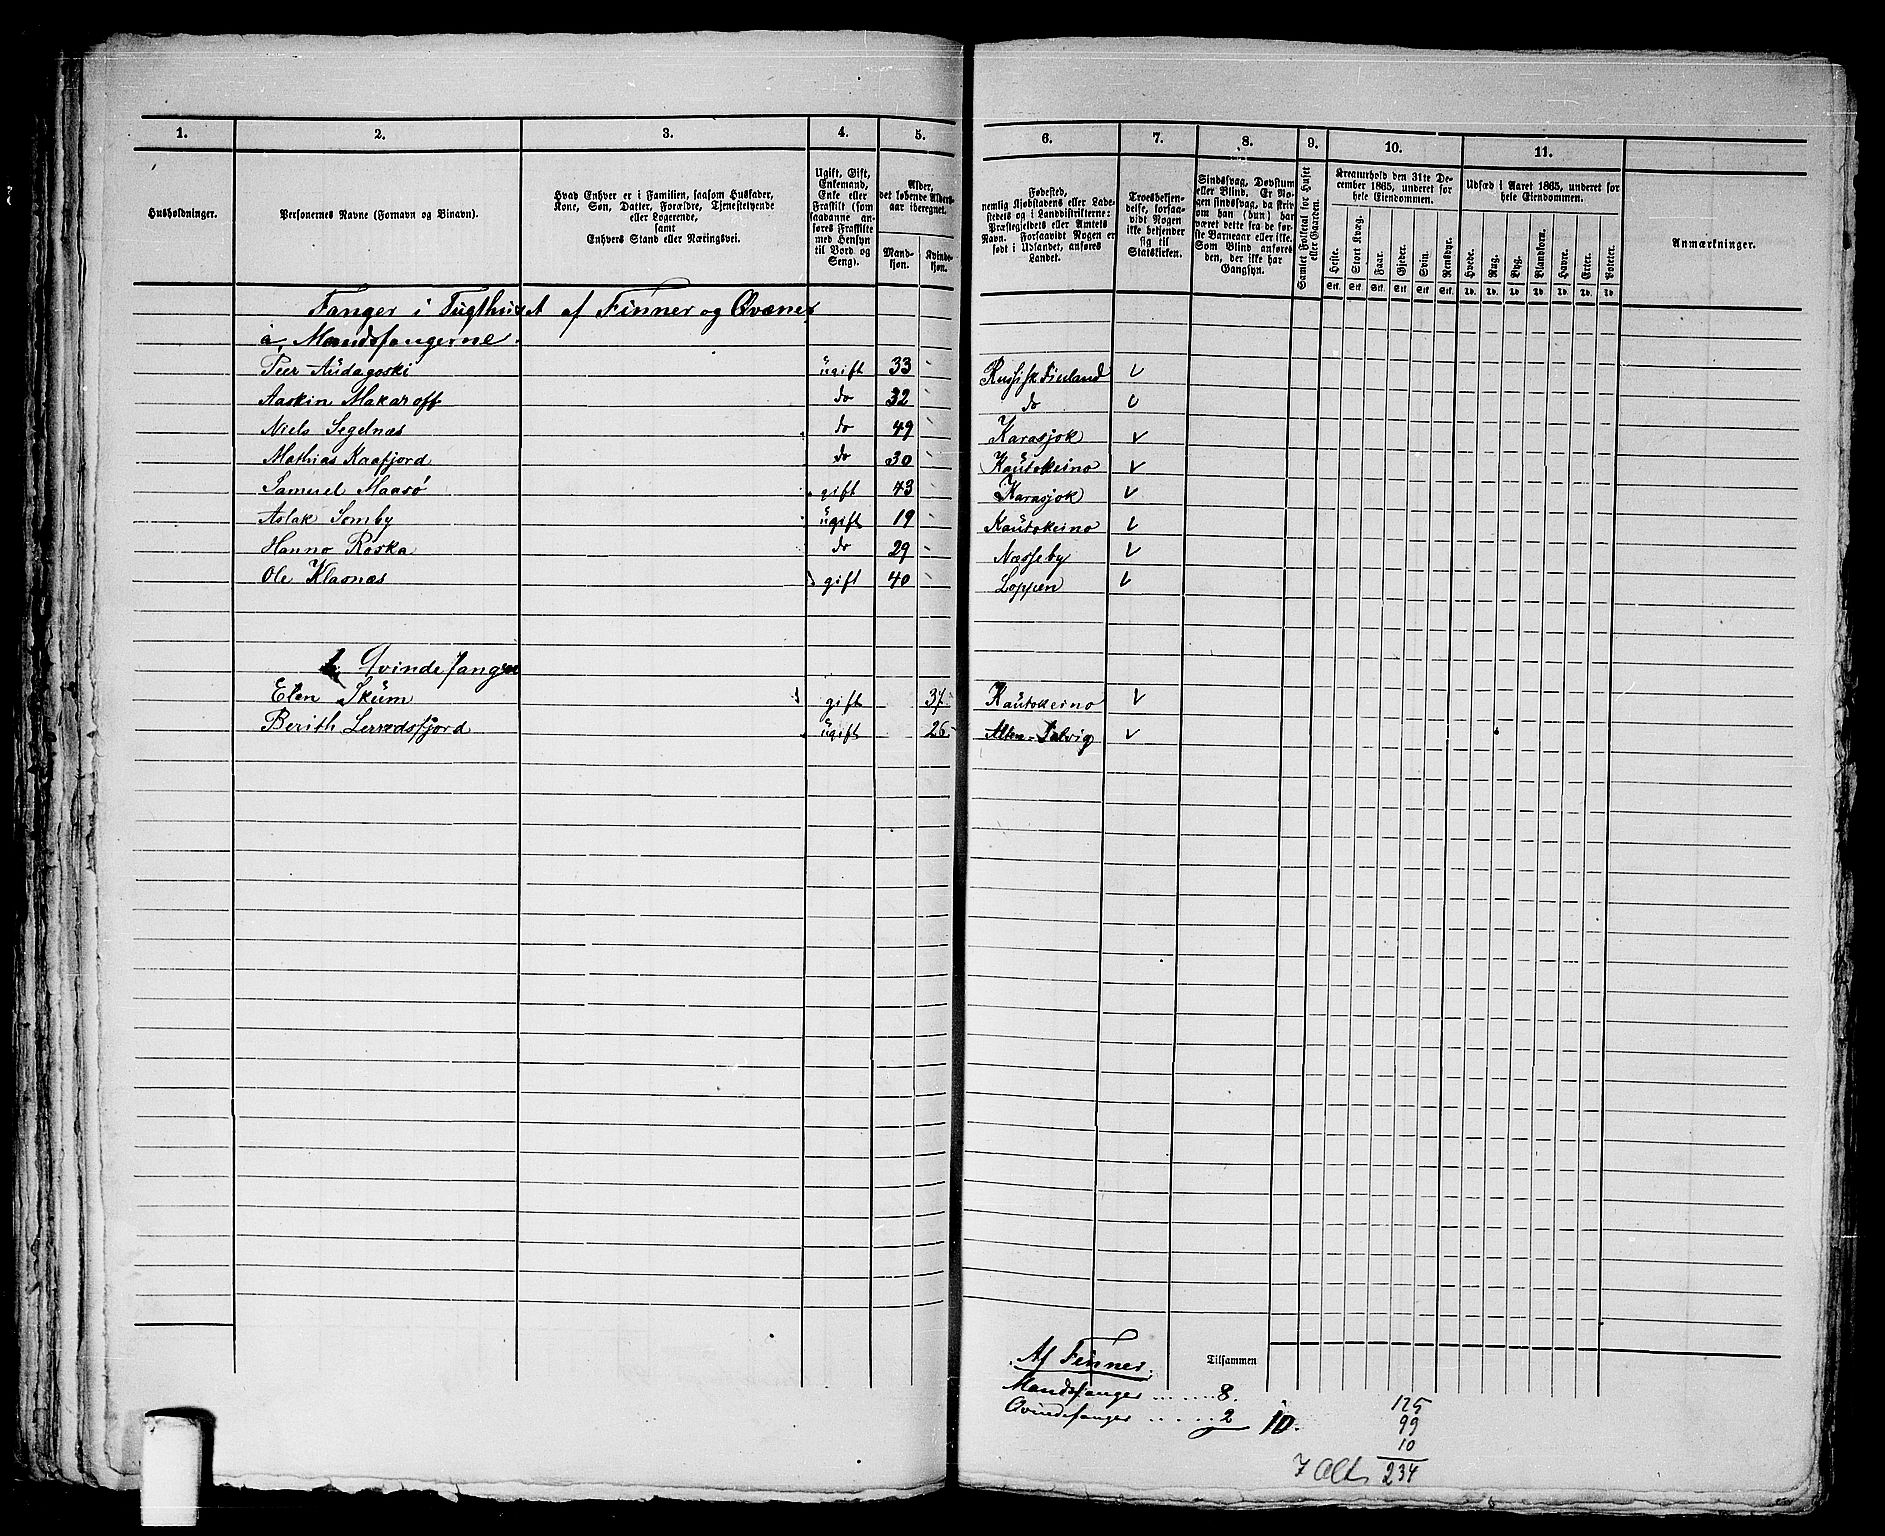 1. 2. 3. 4. 5. 6. 7. 8. 9. 10. 11.
Husholdninger.
Personernes Navne (Fornavn og Binavn).
Hvad Enhver er i Familien, saasom Husfader,
Kone, Søn, Datter, Forældre, Tjenestetyende
eller Logerende,
samt
Enhvers Stand eller Næringsvei.
Ugift, Gift,
Enkemand,
Enke eller
Fraskilt (som
saadanne an-
føres Fraskilte
med Hensyn
til Bord og
Seng).
Alder,
det løbende Alders-
aar iberegnet.
Mand-
kjøn.
Kvinde-
kjøn.
Fødested,
nemlig Kjøbstadens eller Lade-
stedets og i Landdistrikterne:
Præstegjeldets eller Amtets
Navn. Forsaavidt Nogen er
født i Udlandet, anføres
Landet.
Troesbekjen-
delse, forsaa-
vidt Nogen
ikke bekjender
sig til
Statskirken.
Sindssvag, Døvstum
eller Blind. Er No-
gen sindssvag, da skriv
om han (hun) har
været dette fra de før-
ste Barneaar eller ikke.
Som Blind anføres
den, der ikke har
Gangsyn.
Samlet Folketal for Huset
eller Gaarden.
Kreaturhold den 31te De-
cember 1865, underet for
hele Eiendommen.
Heste. Stort Kvæg. Faar. Gjeder. Svin. Rensdyr.
Stk. Stk. Stk. Stk. Stk. Stk.
Udsæd i Aaret 1865, underet for
hele Eiendommen.
Hvede. Rug. Byg. Blandkorn. Havre. Erter. Poteter.
Td. Td. Td. Td. Td. Td. Td.
Anmærkninger.
Fanger i Tugthuset af Finner og Qvæner
a, Mandsfangerne.
Peer Audagoski ugift 33 Russisk Finland
Aaskin Makaroff do 32 do
Niels Segelnæs do 49 Karasjok
Mathias Kaafjord do 30 Kautokeino
Samuel Maasø gift 43 Karasjok
Aslak Somby ugift 19 Kautokeino
Hanno Roska do 29 Næsseby
Ole Klasnæs gift 40 Loppen
b, Qvindefanger
Elen Skum gift 37 Kautokeino
Berith Lerredsfjord ugift 26 Alten-Talvig
Af Finner. Tilsammen
Mandsfanger ....... 8.
Qvindefanger ...... 2 10.
125
99
10
I Alt 234